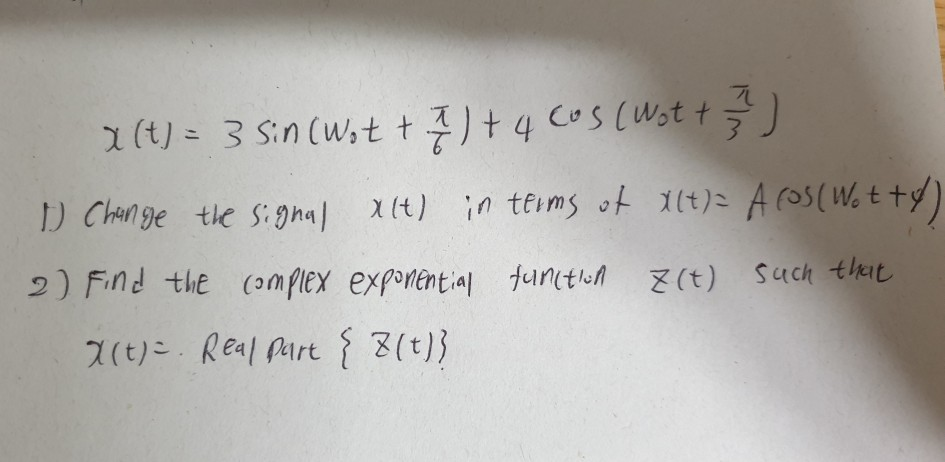 x(t) = 3 sin(w₀t + π/6) + 4 cos(w₀t + π/3)
1) Change the signal x(t) in terms of x(t) = A cos(w₀t + φ)
2) Find the complex exponential function z(t) such that
x(t) = Real part { z(t)}